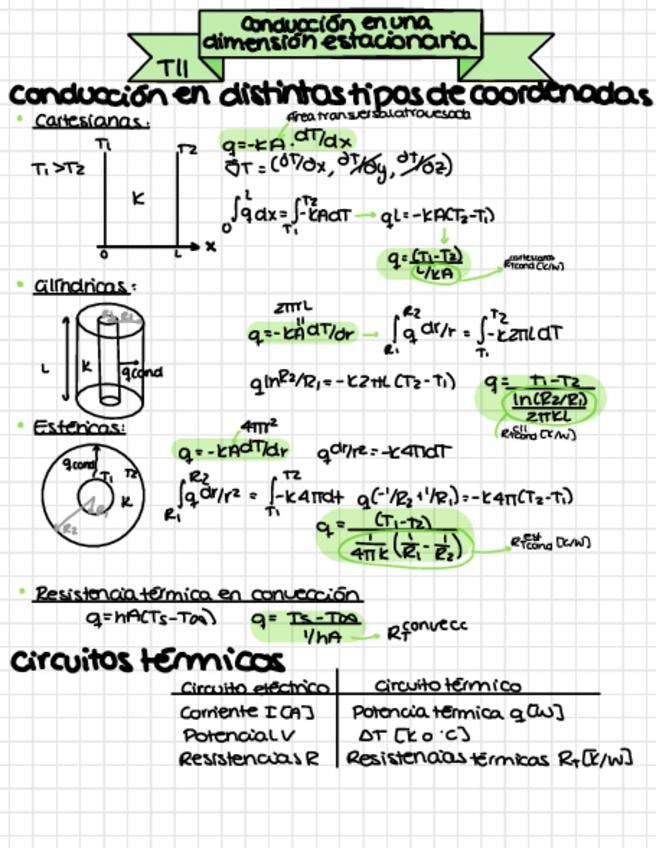 conducción en una
dimensión estacionaria
T11
conducción en distintos tipos de coordenadas
• Cartesianas:
Área transversal atravesada
q=-kA·dT/dx
∇T=(∂T/∂x, ∂T/∂y, ∂T/∂z)
T1>T2
T1
T2
K
0
L
x
∫₀ᴸ q dx = ∫_T1^T2 -kAdT → qL=-kA(T2-T1)
q= (T1-T2) / (L/kA)
R Tcond cartesianas [K/W]
• Cilíndricas:
2πrL
q=-kA dT/dr → ∫_R1^R2 q dr/r = ∫_T1^T2 -k2πLdT
L
K
qcond
q ln R2/R1 = -k2πL (T2-T1)
q= T1-T2 / (ln(R2/R1) / 2πKL)
R Tcond cil [K/W]
• Esféricas:
4πr²
q=-kAdT/dr
q dr/r²=-k4πdT
qcond
T1
T2
K
R1
R2
∫_R1^R2 q dr/r² = ∫_T1^T2 -k4πdt q(-1/R2+1/R1)=-k4π(T2-T1)
q= (T1-T2) / (1/4πk (1/R1 - 1/R2))
R Tcond esf [K/W]
• Resistencia térmica en convección
q=hA(Ts-T∞)
q= Ts-T∞ / (1/hA) → R T convecc
circuitos térmicos
Circuito eléctrico
circuito térmico
Corriente I [A]
Potencia térmica q [W]
Potencial V
ΔT [K o ºC]
Resistencias R
Resistencias térmicas RT [K/W]